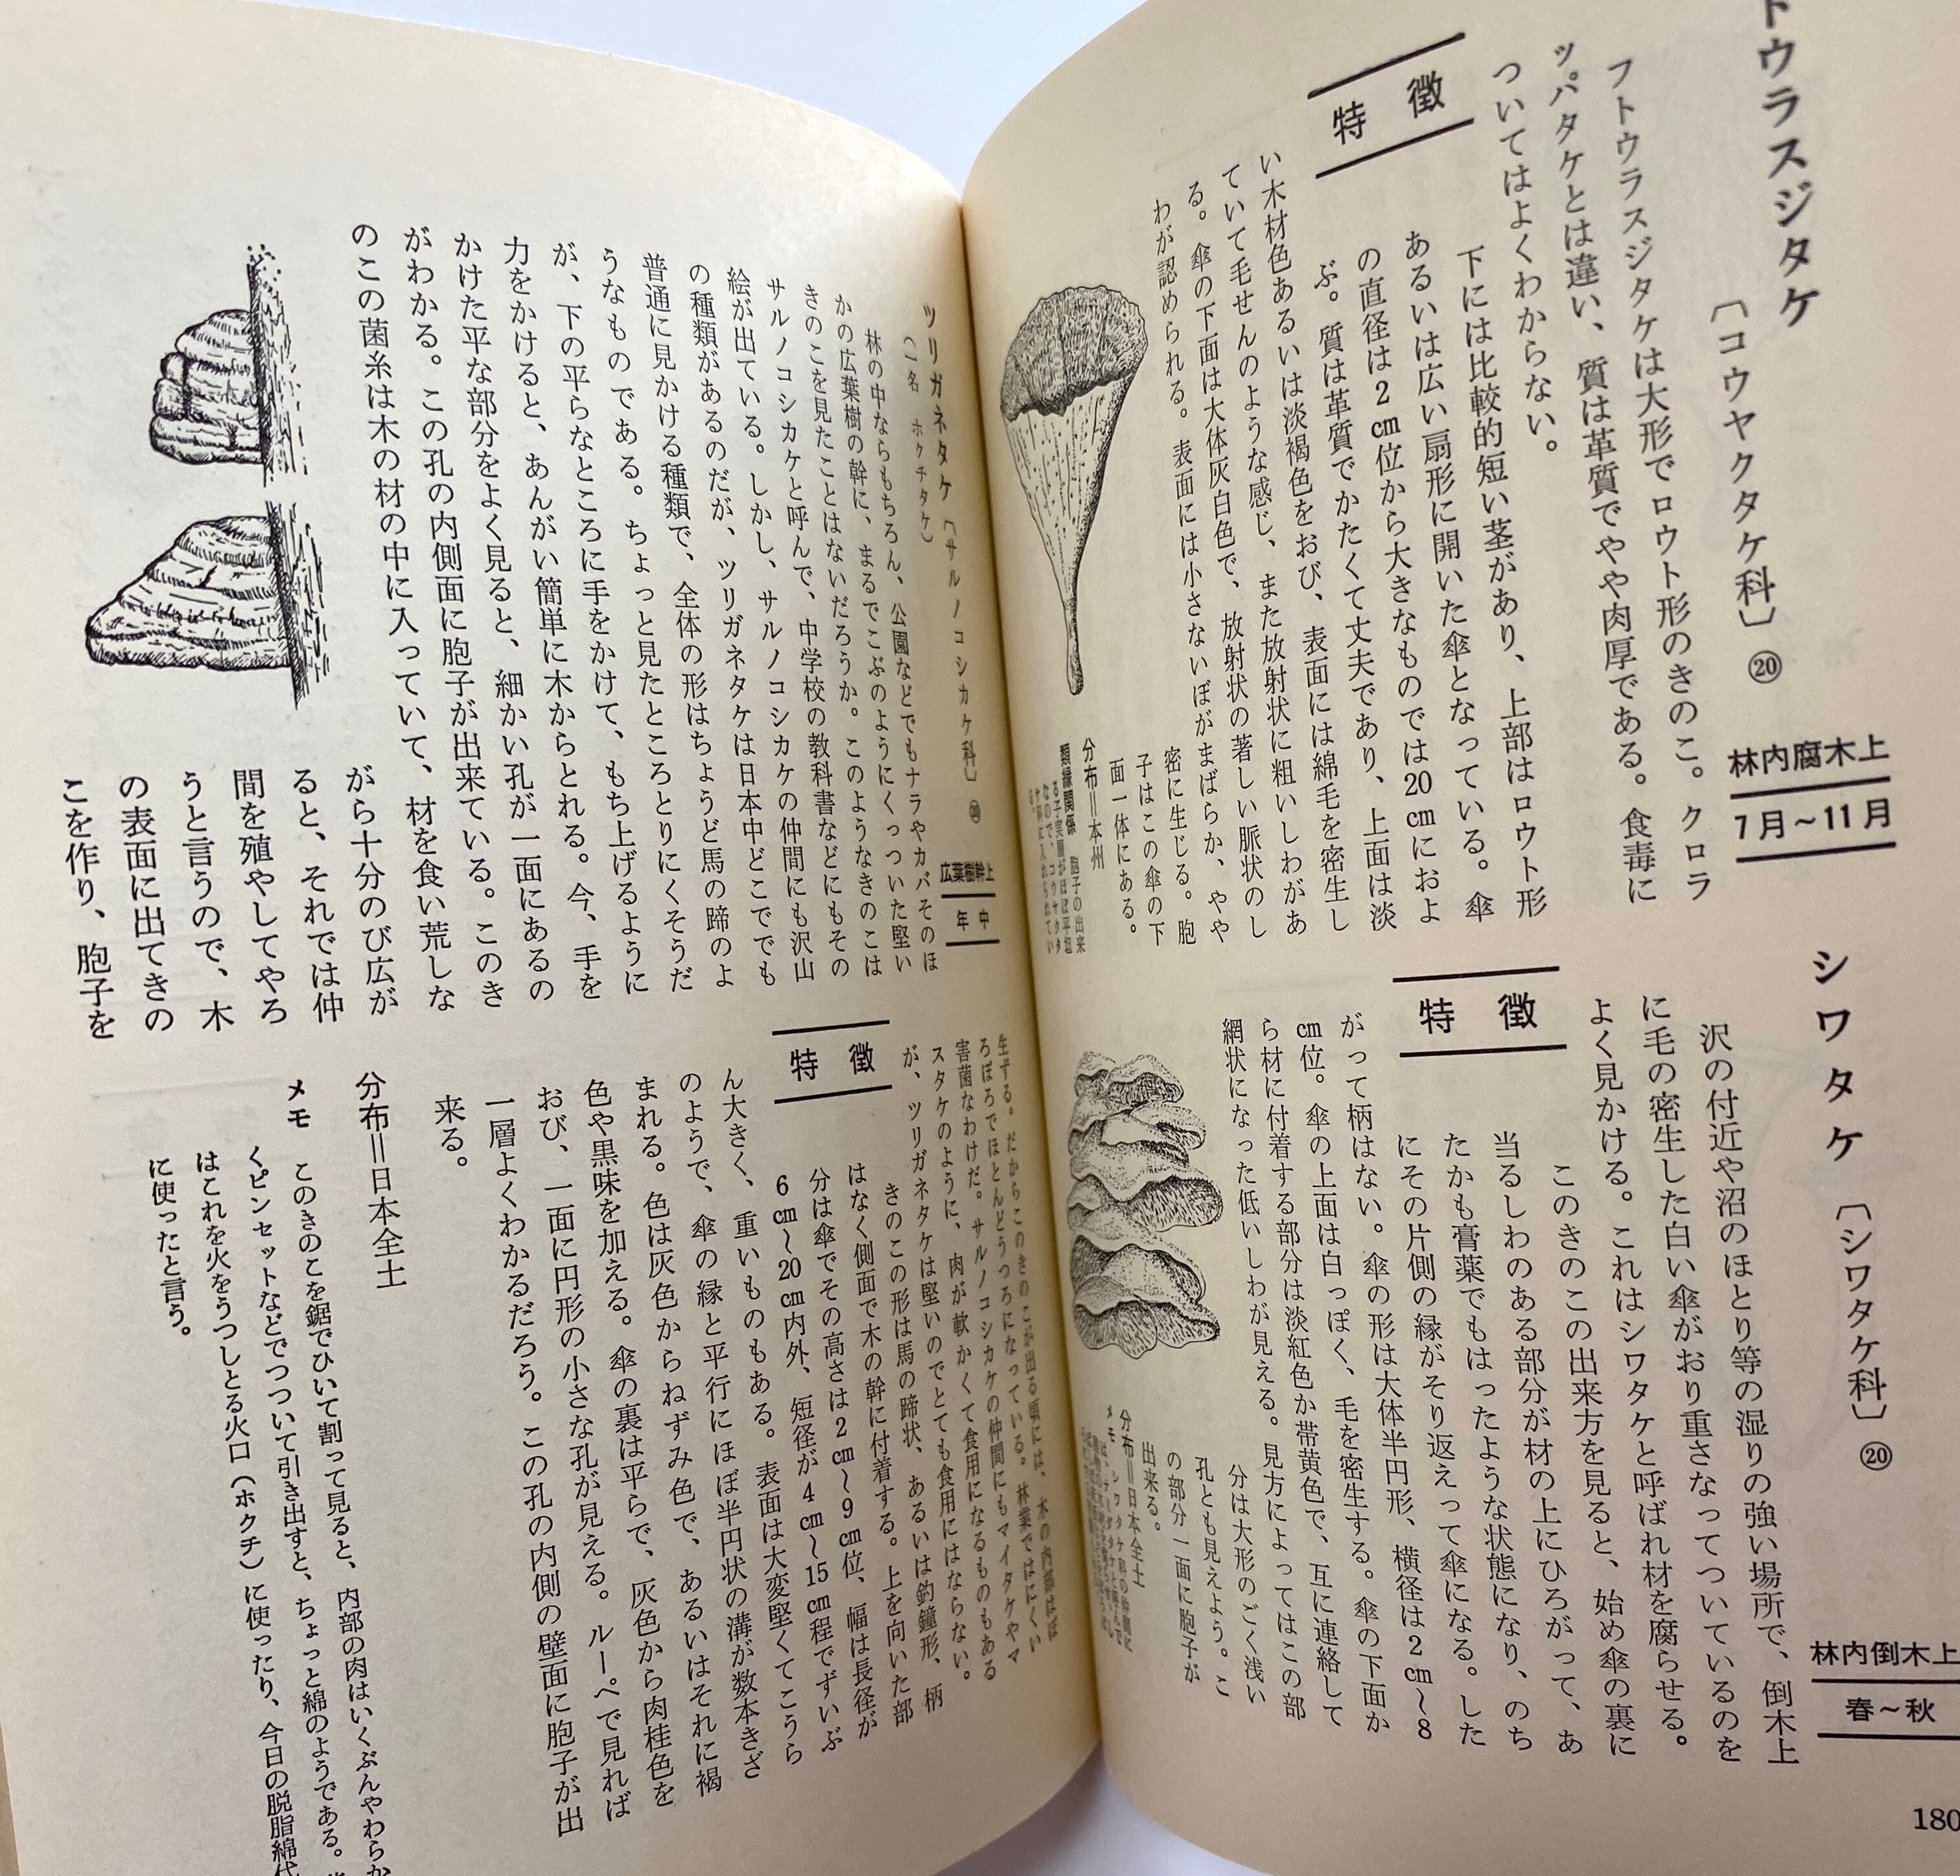 トウラスジタケ
〔コウヤクタケ科〕 ⑳
林内腐木上
7月～11月
フトウラスジタケは大形でロウト形のきのこ。クロラ
ッパタケとは違い、質は革質でやや肉厚である。食毒に
ついてはよくわからない。
特徴
下には比較的短い茎があり、上部はロウト形
あるいは広い扇形に開いた傘となっている。傘
の直径は2cm位から大きなものでは20cmにおよ
ぶ。質は革質でかたくて丈夫であり、上面は淡
い木材色あるいは淡褐色をおび、表面には綿毛を密生し
ていて毛せんのような感じ、また放射状に粗いしわがあ
る。傘の下面は大体灰白色で、放射状の著しい脈状のし
わが認められる。表面には小さないぼがまばらか、やや
密に生じる。胞
子はこの傘の下
面一体にある。
分布＝本州
類縁関係 胞子の出来
る子実層がほぼ平坦
なので、コウヤクタ
ケ科に入れられてい
る。
シワタケ〔シワタケ科〕 ⑳
林内倒木上
春～秋
沢の付近や沼のほとり等の湿りの強い場所で、倒木上
に毛の密生した白い傘がおり重さなってついているのを
よく見かける。これはシワタケと呼ばれ材を腐らせる。
特徴
このきのこの出来方を見ると、始め傘の裏に
当るしわのある部分が材の上にひろがって、あ
たかも膏薬でもはったような状態になり、のち
にその片側の縁がそり返えって傘になる。した
がって柄はない。傘の形は大体半円形、横径は2cm～8
cm位。傘の上面は白っぽく、毛を密生する。傘の下面か
ら材に付着する部分は淡紅色か帯黄色で、互に連絡して
網状になった低いしわが見える。見方によってはこの部
分は大形のごく浅い
孔とも見えよう。こ
の部分一面に胞子が
出来る。
分布＝日本全土
メモ シワタケ科の仲間に
180
ツリガネタケ〔サルノコシカケ科〕 ⑳
（一名 ホクチタケ）
広葉樹幹上
年中
林の中ならもちろん、公園などでもナラやカバそのほ
かの広葉樹の幹に、まるでこぶのようにくっついた堅い
きのこを見たことはないだろうか。このようなきのこは
サルノコシカケと呼んで、中学校の教科書などにもその
絵が出ている。しかし、サルノコシカケの仲間にも沢山
の種類があるのだが、ツリガネタケは日本中どこででも
普通に見かける種類で、全体の形はちょうど馬の蹄のよ
うなものである。ちょっと見たところとりにくそうだ
が、下の平らなところに手をかけて、もち上げるように
力をかけると、あんがい簡単に木からとれる。今、手を
かけた平な部分をよく見ると、細かい孔が一面にあるの
がわかる。この孔の内側面に胞子が出来ている。このき
のこの菌糸は木の材の中に入っていて、材を食い荒しな
がら十分のび広が
ると、それでは仲
間を殖やしてやろ
うと言うので、木
の表面に出てきの
こを作り、胞子を
生ずる。だからこのきのこが出る頃には、木の内部はぼ
ろぼろでほとんどうつろになっている。林業ではにくい
害菌なわけだ。サルノコシカケの仲間にもマイタケやマ
スタケのように、肉が軟かくて食用になるものもある
が、ツリガネタケは堅いのでとても食用にはならない。
特徴
きのこの形は馬の蹄状、あるいは釣鐘形、柄
はなく側面で木の幹に付着する。上を向いた部
分は傘でその高さは2cm～9cm位、幅は長径が
6cm～20cm内外、短径が4cm～15cm程でずいぶ
ん大きく、重いものもある。表面は大変堅くてこうら
のようで、傘の縁と平行にほぼ半円状の溝が数本きざ
まれる。色は灰色からねずみ色で、あるいはそれに褐
色や黒味を加える。傘の裏は平らで、灰色から肉桂色を
おび、一面に円形の小さな孔が見える。ルーペで見れば
一層よくわかるだろう。この孔の内側の壁面に胞子が出
来る。
分布＝日本全土
メモ このきのこを鋸でひいて割って見ると、内部の肉はいくぶんやわらか
くピンセットなどでつついて引き出すと、ちょっと綿のようである。
はこれを火をうつしとる火口（ホクチ）に使ったり、今日の脱脂綿代
に使ったと言う。